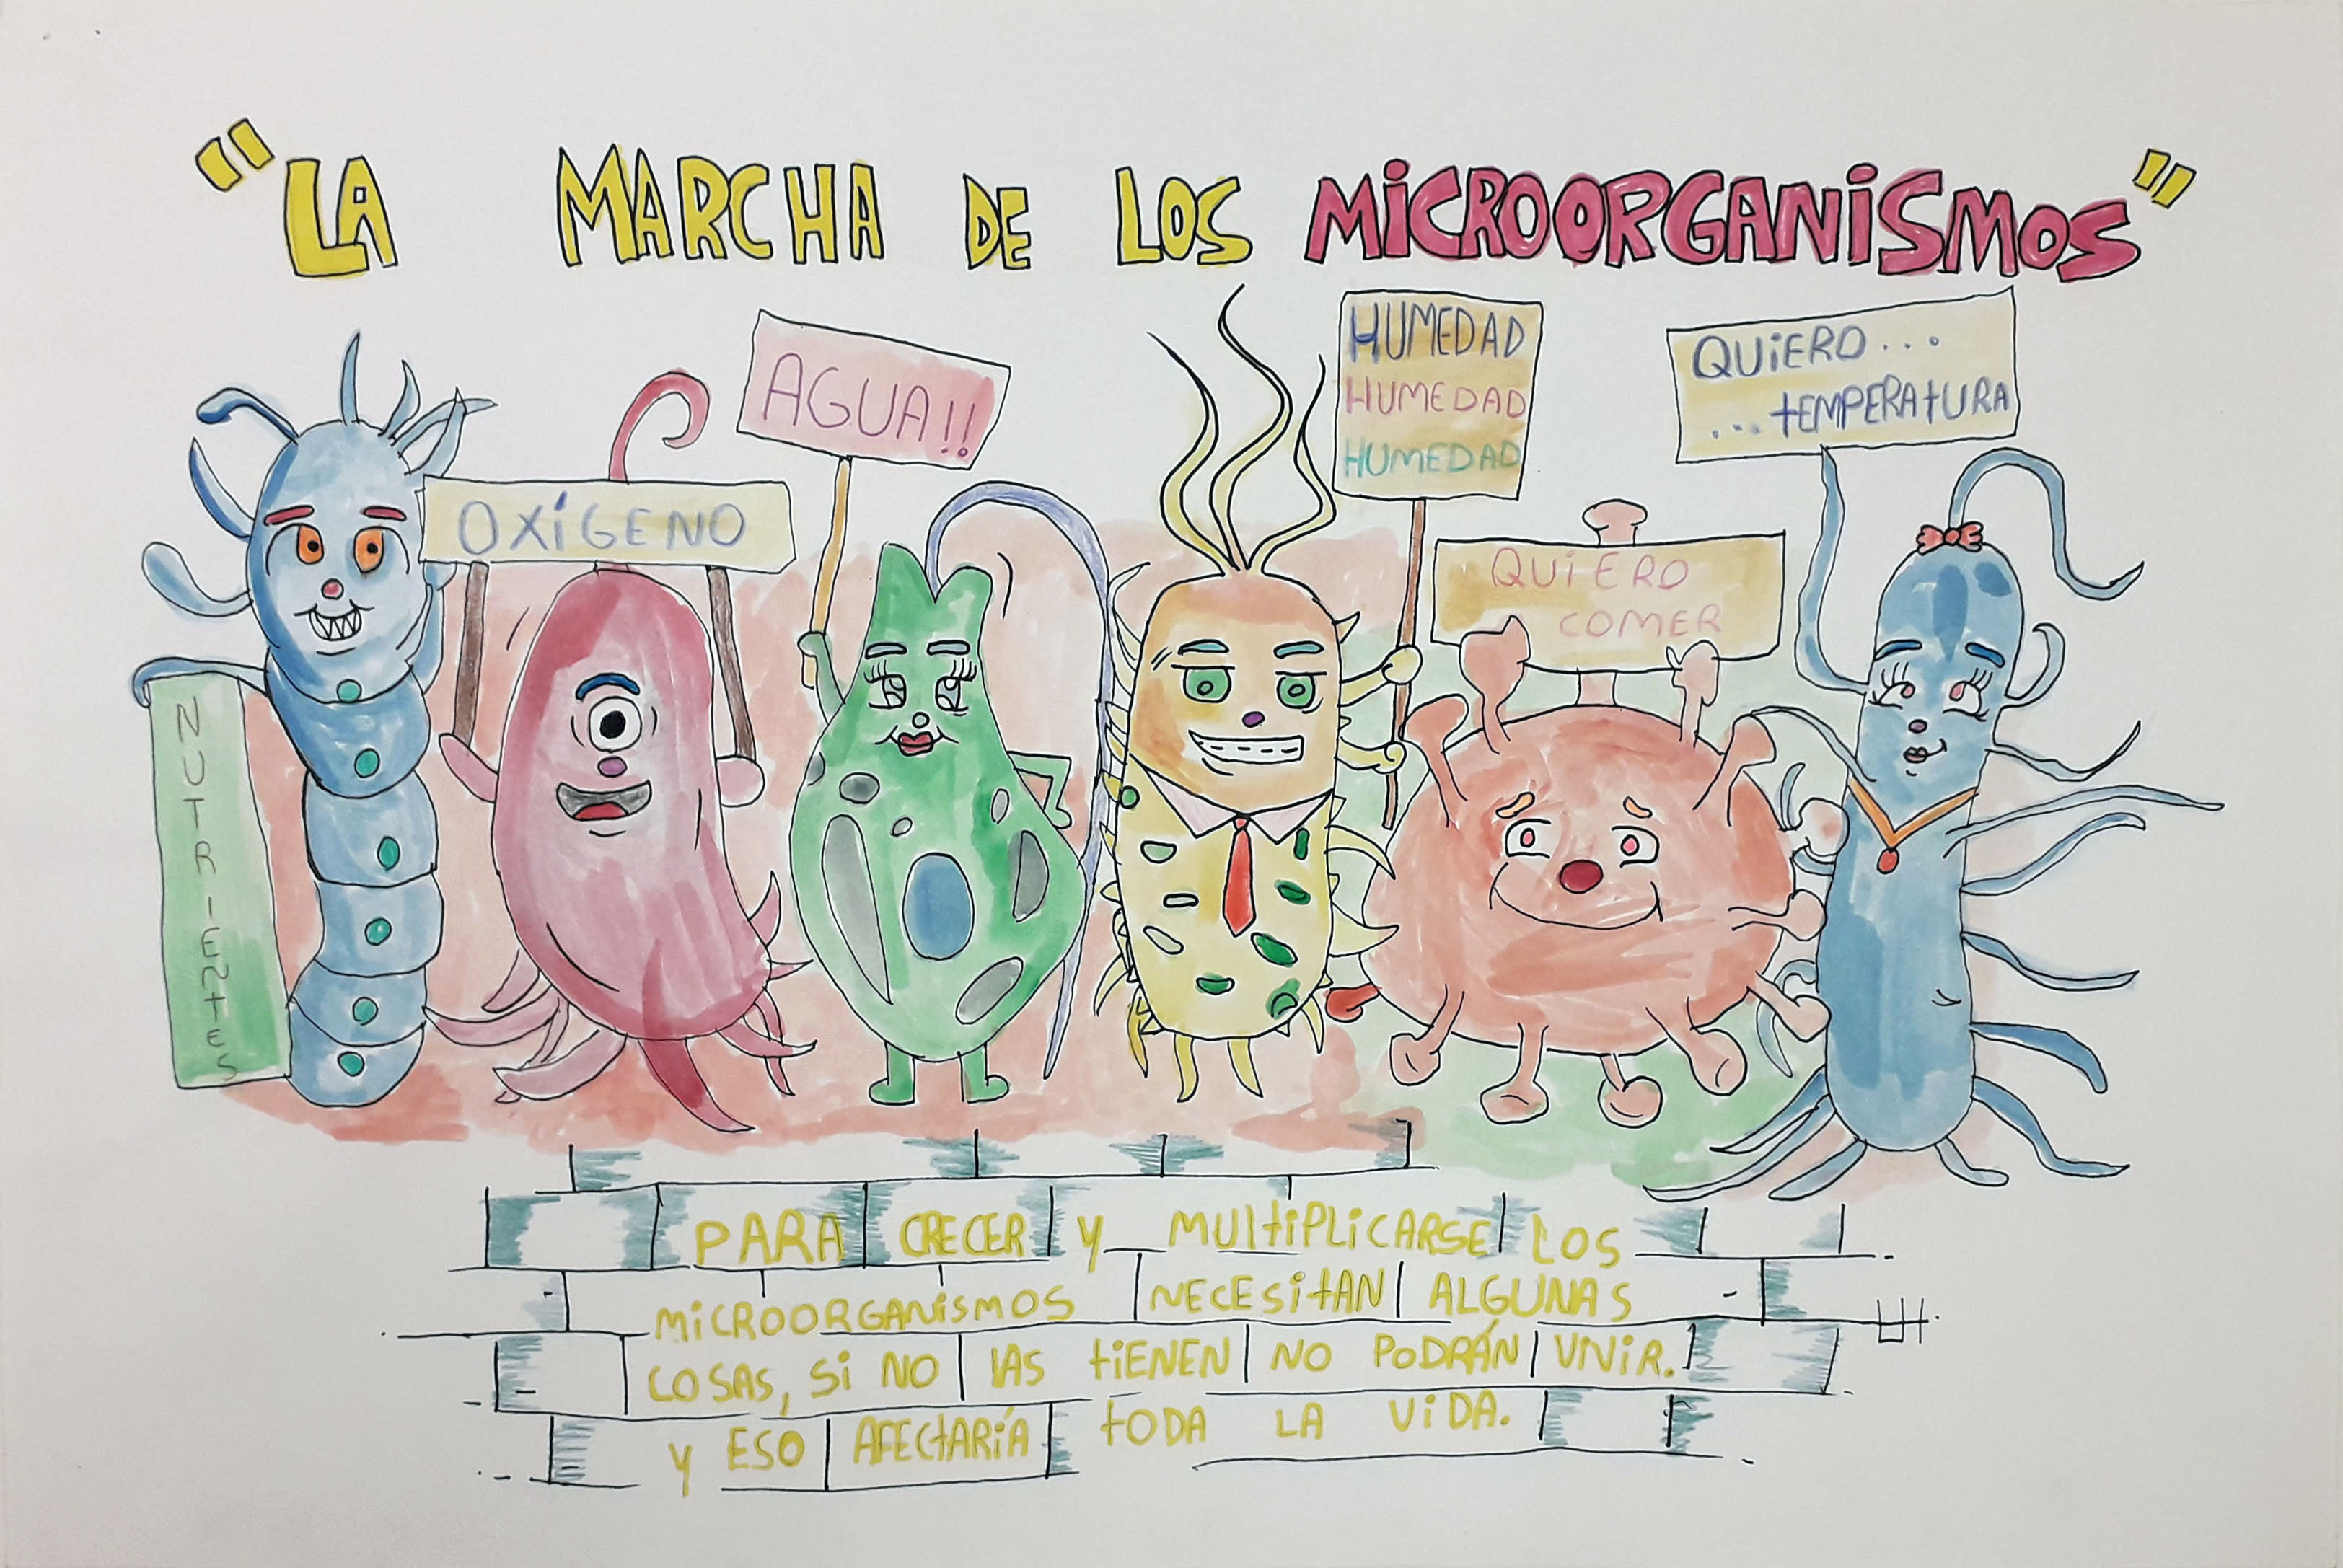 "LA MARCHA DE LOS MICROORGANISMOS"
NUTRIENTES
OXÍGENO
AGUA!!
HUMEDAD
HUMEDAD
HUMEDAD
QUIERO
COMER
QUIERO...
...TEMPERATURA
PARA CRECER Y MULTIPLICARSE LOS
MICROORGANISMOS NECESITAN ALGUNAS
COSAS, SI NO LAS TIENEN NO PODRÁN VIVIR.
Y ESO AFECTARÍA TODA LA VIDA.